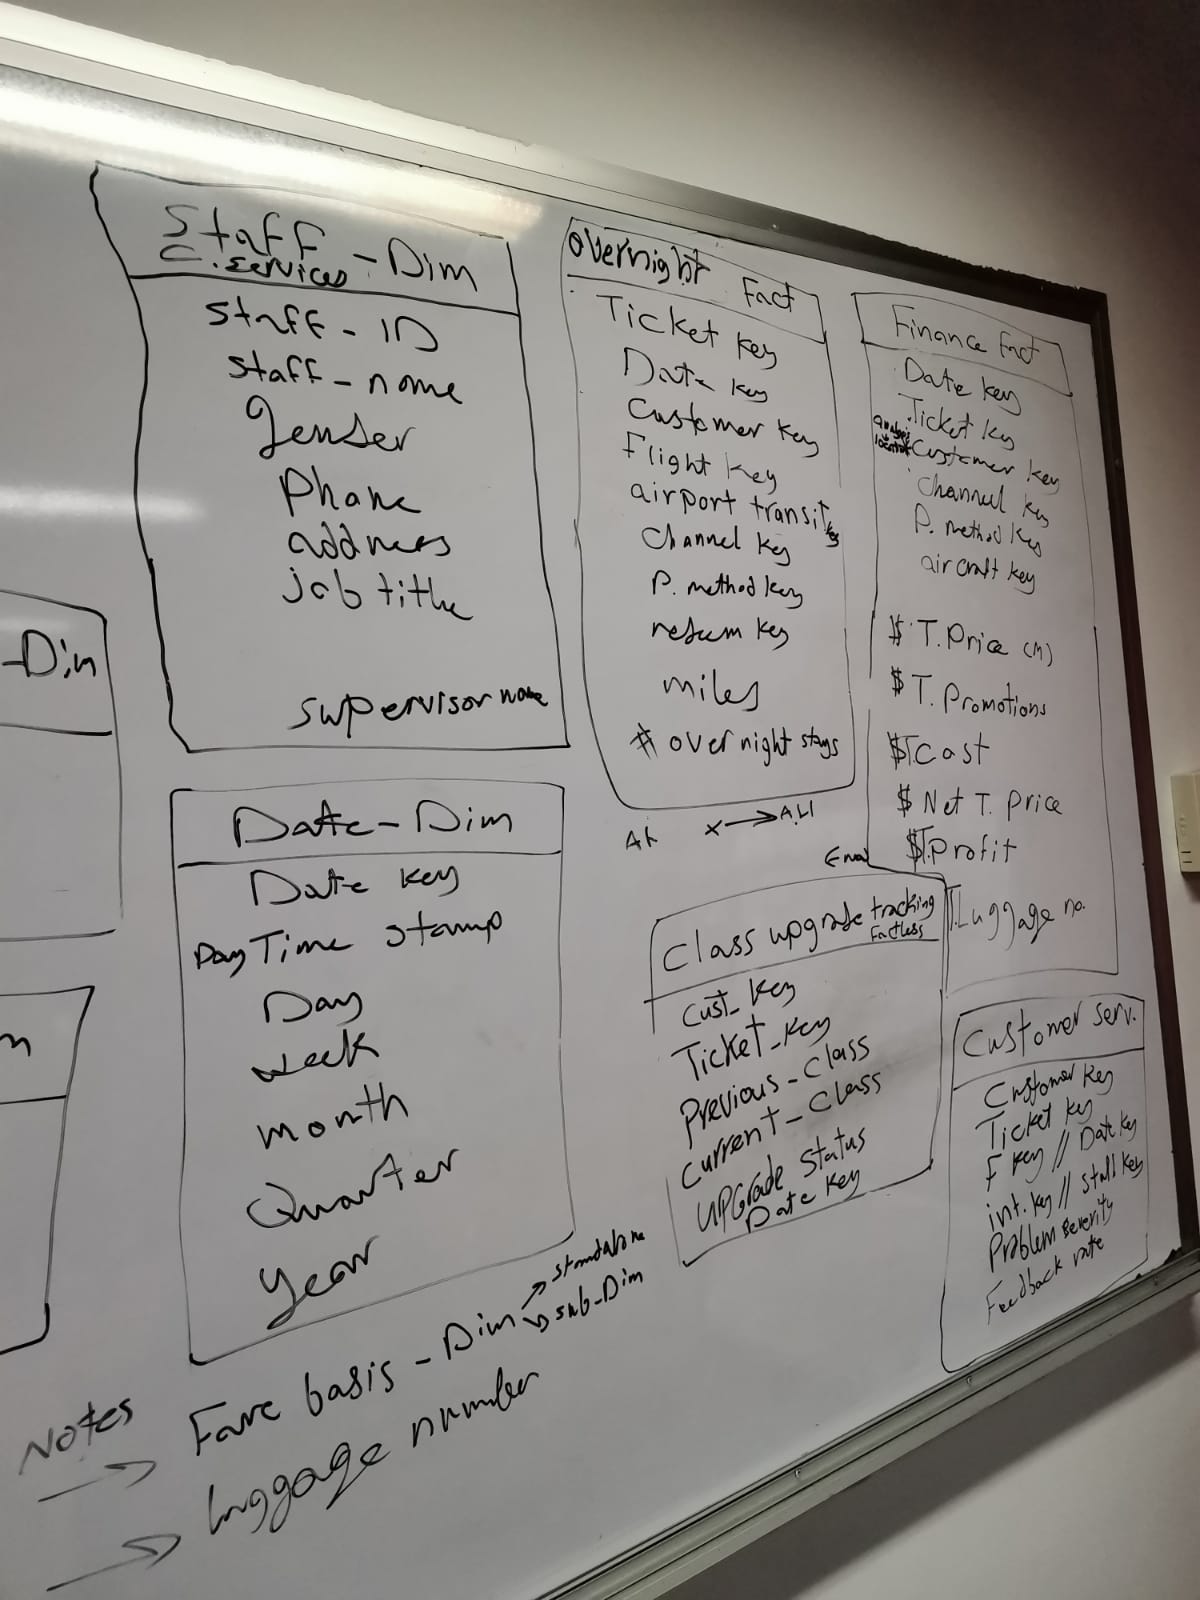 Staff - Dim
C. services
staff - ID
staff - name
Gender
Phone
address
job title
supervisor name
-Dim
Date - Dim
Date key
Day Time stamp
Day
week
month
Quarter
Year
Overnight Fact
Ticket key
Date key
Customer key
Flight key
airport transit key
Channel key
P. method key
return key
miles
# overnight stays
x → ALI
Finance Fact
Date key
Ticket key
Customer key
channel key
P. method key
aircraft key
$ T. Price (M)
$ T. Promotions
$ T. Cost
$ Net T. Price
$ T. Profit
T. Luggage no.
Class upgrade tracking
Factless
Cust_ key
Ticket_key
Previous_Class
Current_Class
UPGrade Status
Date key
Customer serv.
Customer key
Ticket key
F key // Date key
int. key // Staff key
Problem severity
Feedback rate
Notes
→ Fare basis - Dim → standalone
→ sub-Dim
→ luggage number